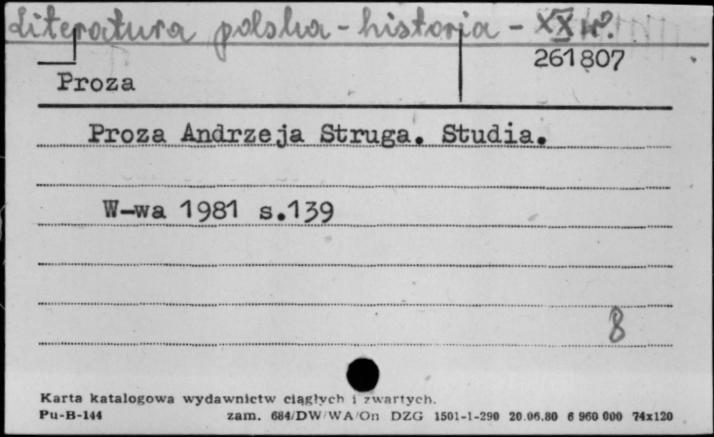 Literatura polska - historia - XX w.
261807
Proza
Proza Andrzeja Struga. Studia.
W-wa 1981 s.139
8
Karta katalogowa wydawnictw ciągłych i zwartych.
Pu-B-144 zam. 684/DW/WA/On DZG 1501-1-290 20.06.80 6 960 000 74x120